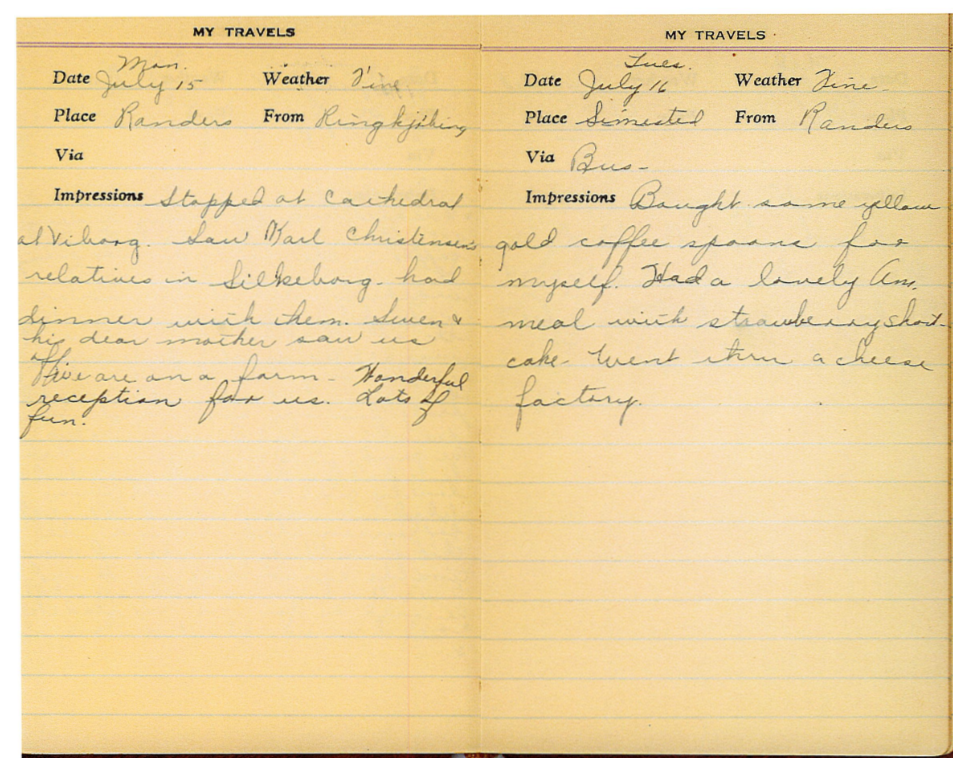 MY TRAVELS
Mon.
Date July 15 Weather Fine
Place Randers From Ringkjöbing
Via
Impressions Stopped at Cathedral
at Viborg. Saw Karl Christensen's
relatives in Silkeborg. had
dinner with them. Swen &
his dear mother saw us
are on a farm - Wonderful
reception for us. Lots of
fun.
MY TRAVELS
Tues.
Date July 16 Weather Fine-
Place Simested From Randers
Via Bus-
Impressions Bought some yellow
gold coffee spoons for
myself. Had a lovely Am.
meal with strawberry short-
cake- Went thru a cheese
factory.